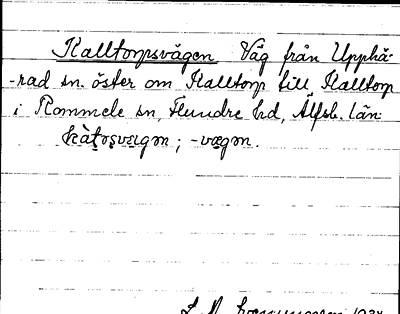 Kalltorpsvägen Väg från Upphä-
-rad sn. öster om Kalltorp till Kalltorp
i Rommele sn, Flundre hd, Älfsb. län
kàtɔsvægən; -vægən.